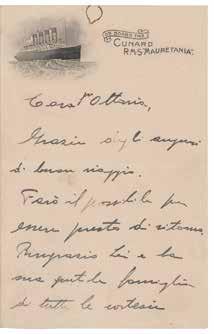 ON BOARD THE
CUNARD
R.M.S. "MAURETANIA".
Caro Ottavio,
Grazie degli auguri
di buon viaggio.
Farò il possibile per
essere presto di ritorno.
Ringrazio Lei e la
sua gentile famiglia
di tutte le cortesie